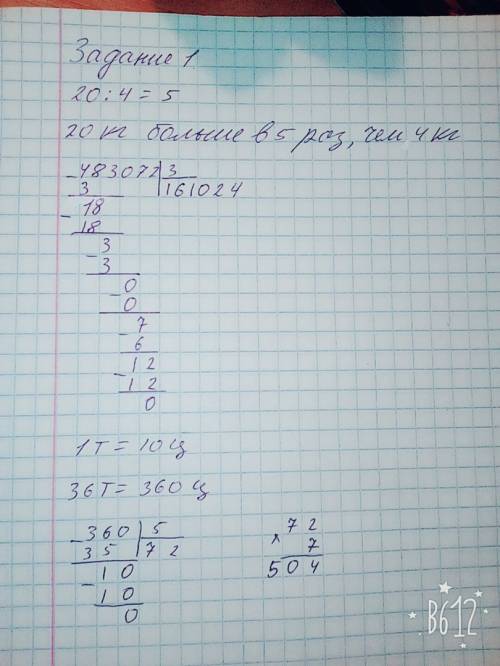 Задание 1
20:4=5
20 кг больше в 5 раз, чем 4 кг
483072 3
3 161024
18
18
3
3
0
0
7
6
12
12
0
1т=10ц
36т=360ц
360 5
35 72
10
10
0
72
× 7
504
B612